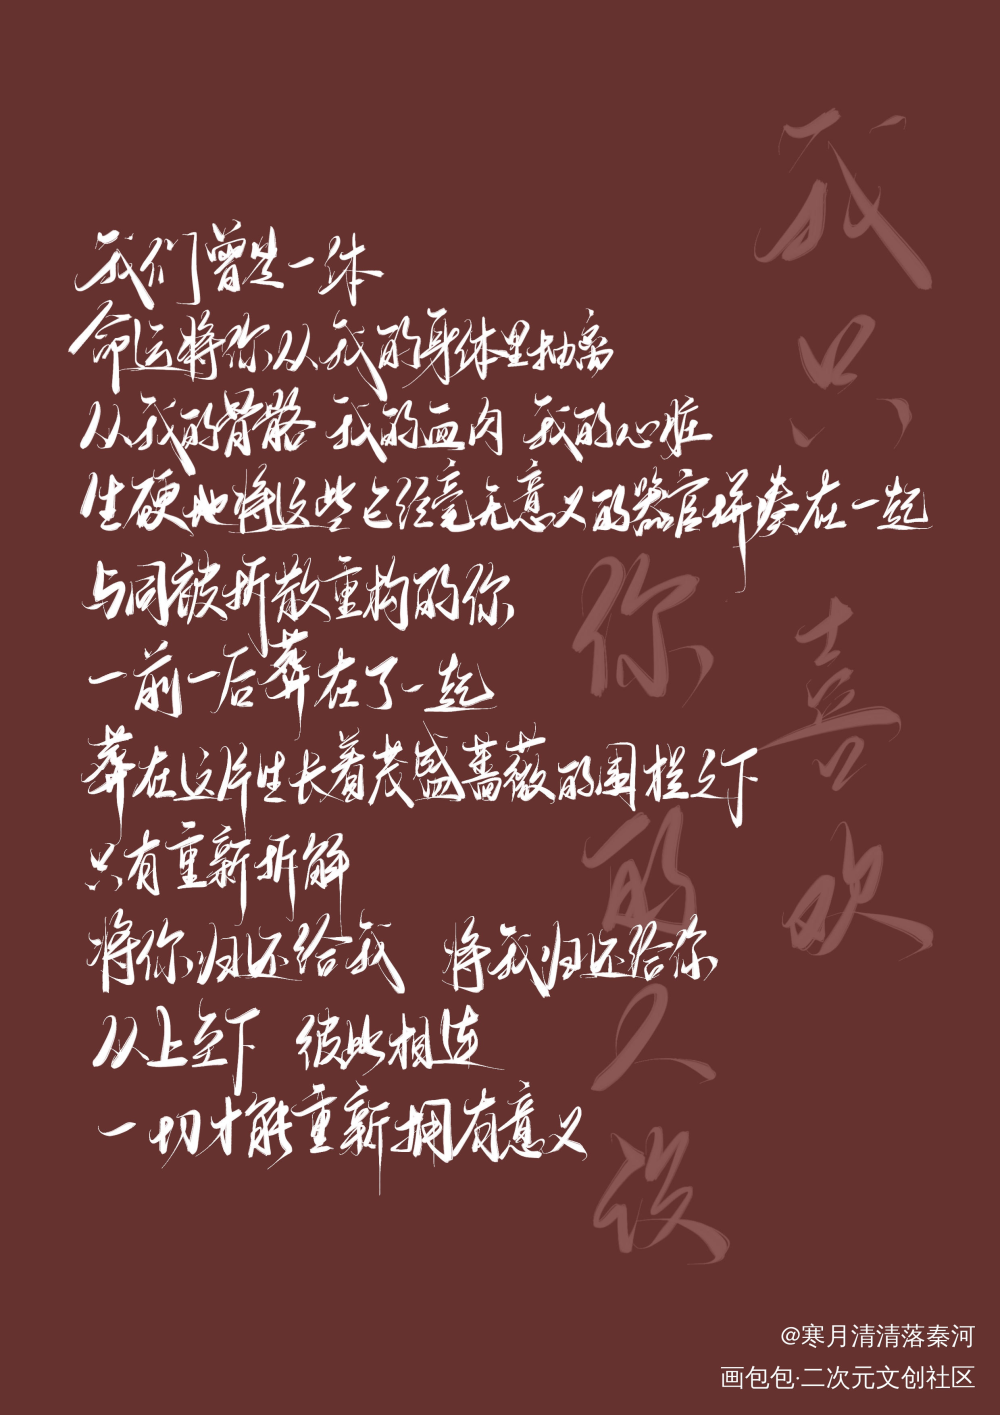 我们曾是一体
命运将你从我的身体里抽离
从我的骨骼 我的血肉 我的心脏
生硬地将这些已经毫无意义的器官拼凑在一起
与同被拆散重构的你
一前一后葬在了一起
葬在这片生长着茂盛蔷薇的围栏之下
只有重新拆解
将你归还给我 将我归还给你
从上至下 彼此相连
一切才能重新拥有意义
我只喜欢
你的人设
@寒月清清落秦河
画包包·二次元文创社区